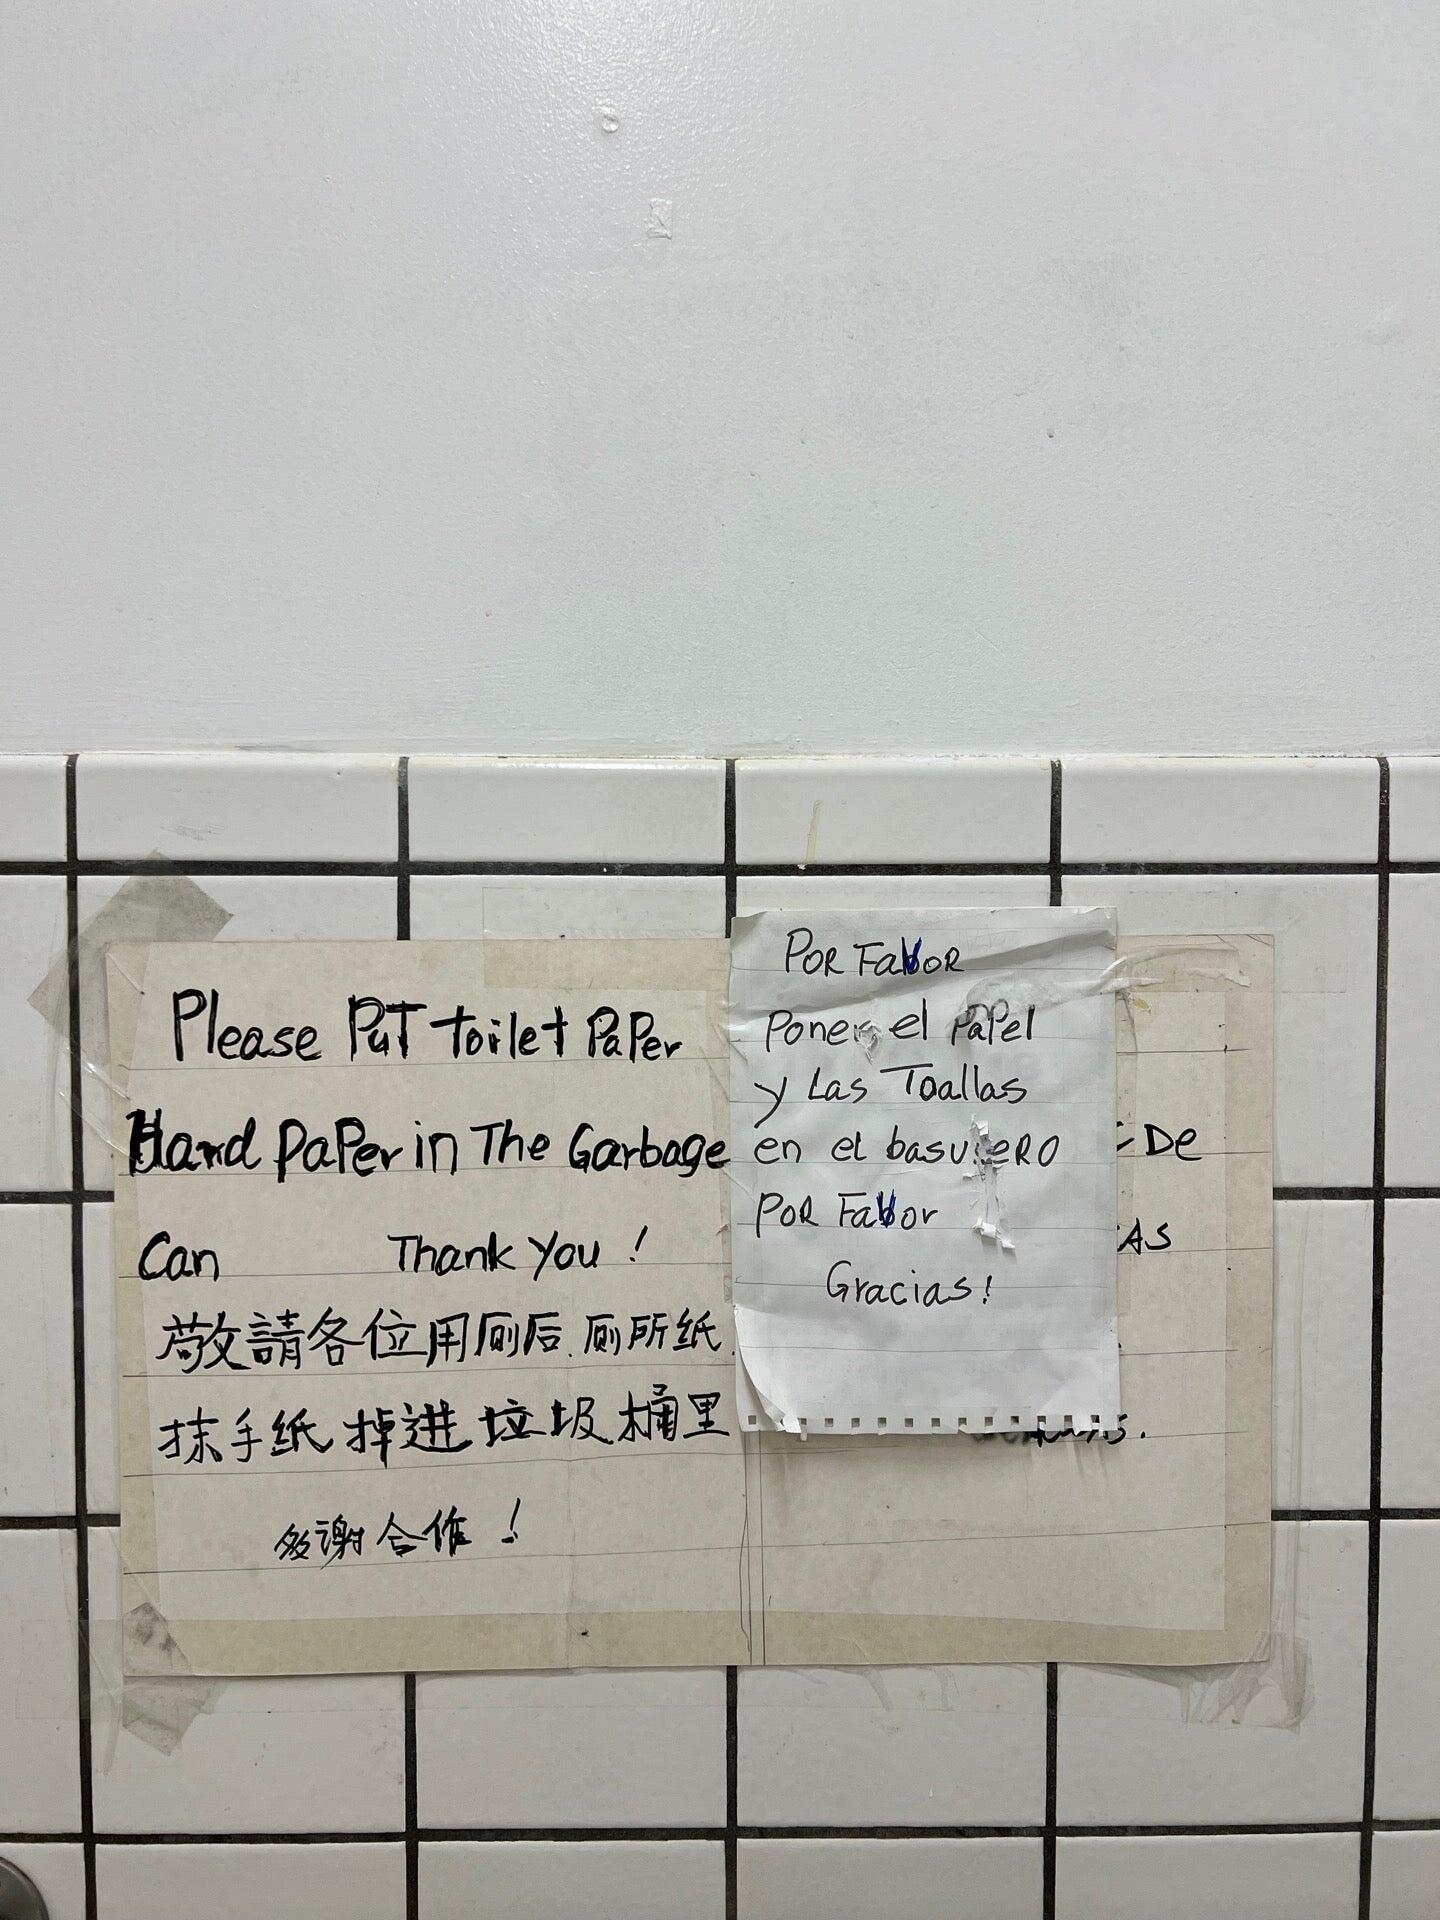 Please PUT toilet PaPer
Hand PaPer in The Garbage
Can Thank you !
敬請各位用厕后.厕所纸.
抹手纸掉进垃圾桶里
多谢合作！
POR FaVOR
Poner el PaPel
y Las Toallas
en el basurERO
POR FaVor
Gracias!
DE
AS